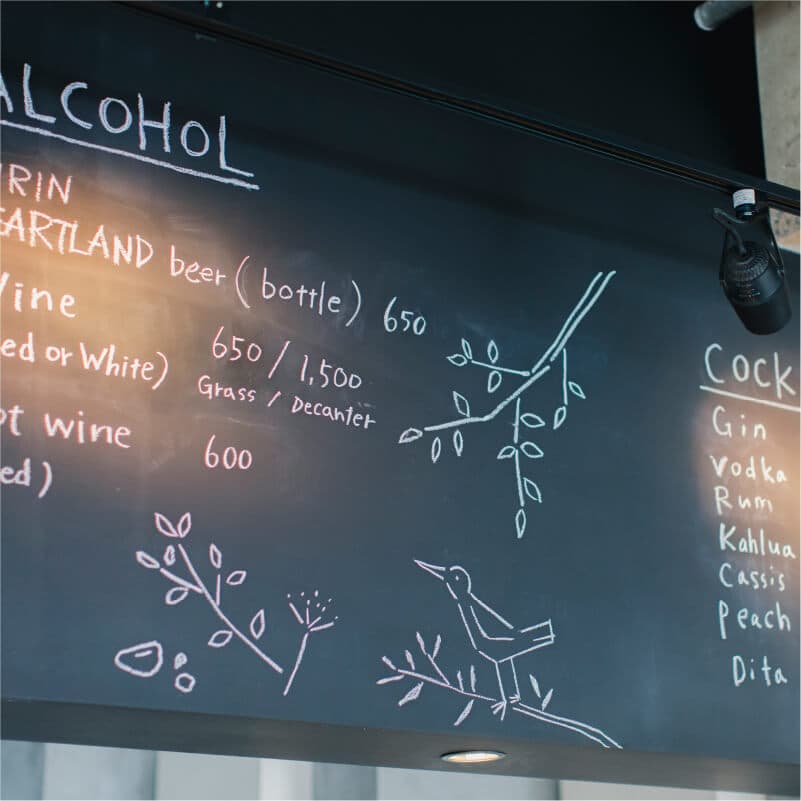 ALCOHOL
IRIN
EARTLAND beer (bottle) 650
Wine
ed or White) 650 / 1,500
Grass / Decanter
ot wine 600
ed)
COCK
Gin
Vodka
Rum
Kahlua
Cassis
Peach
Dita